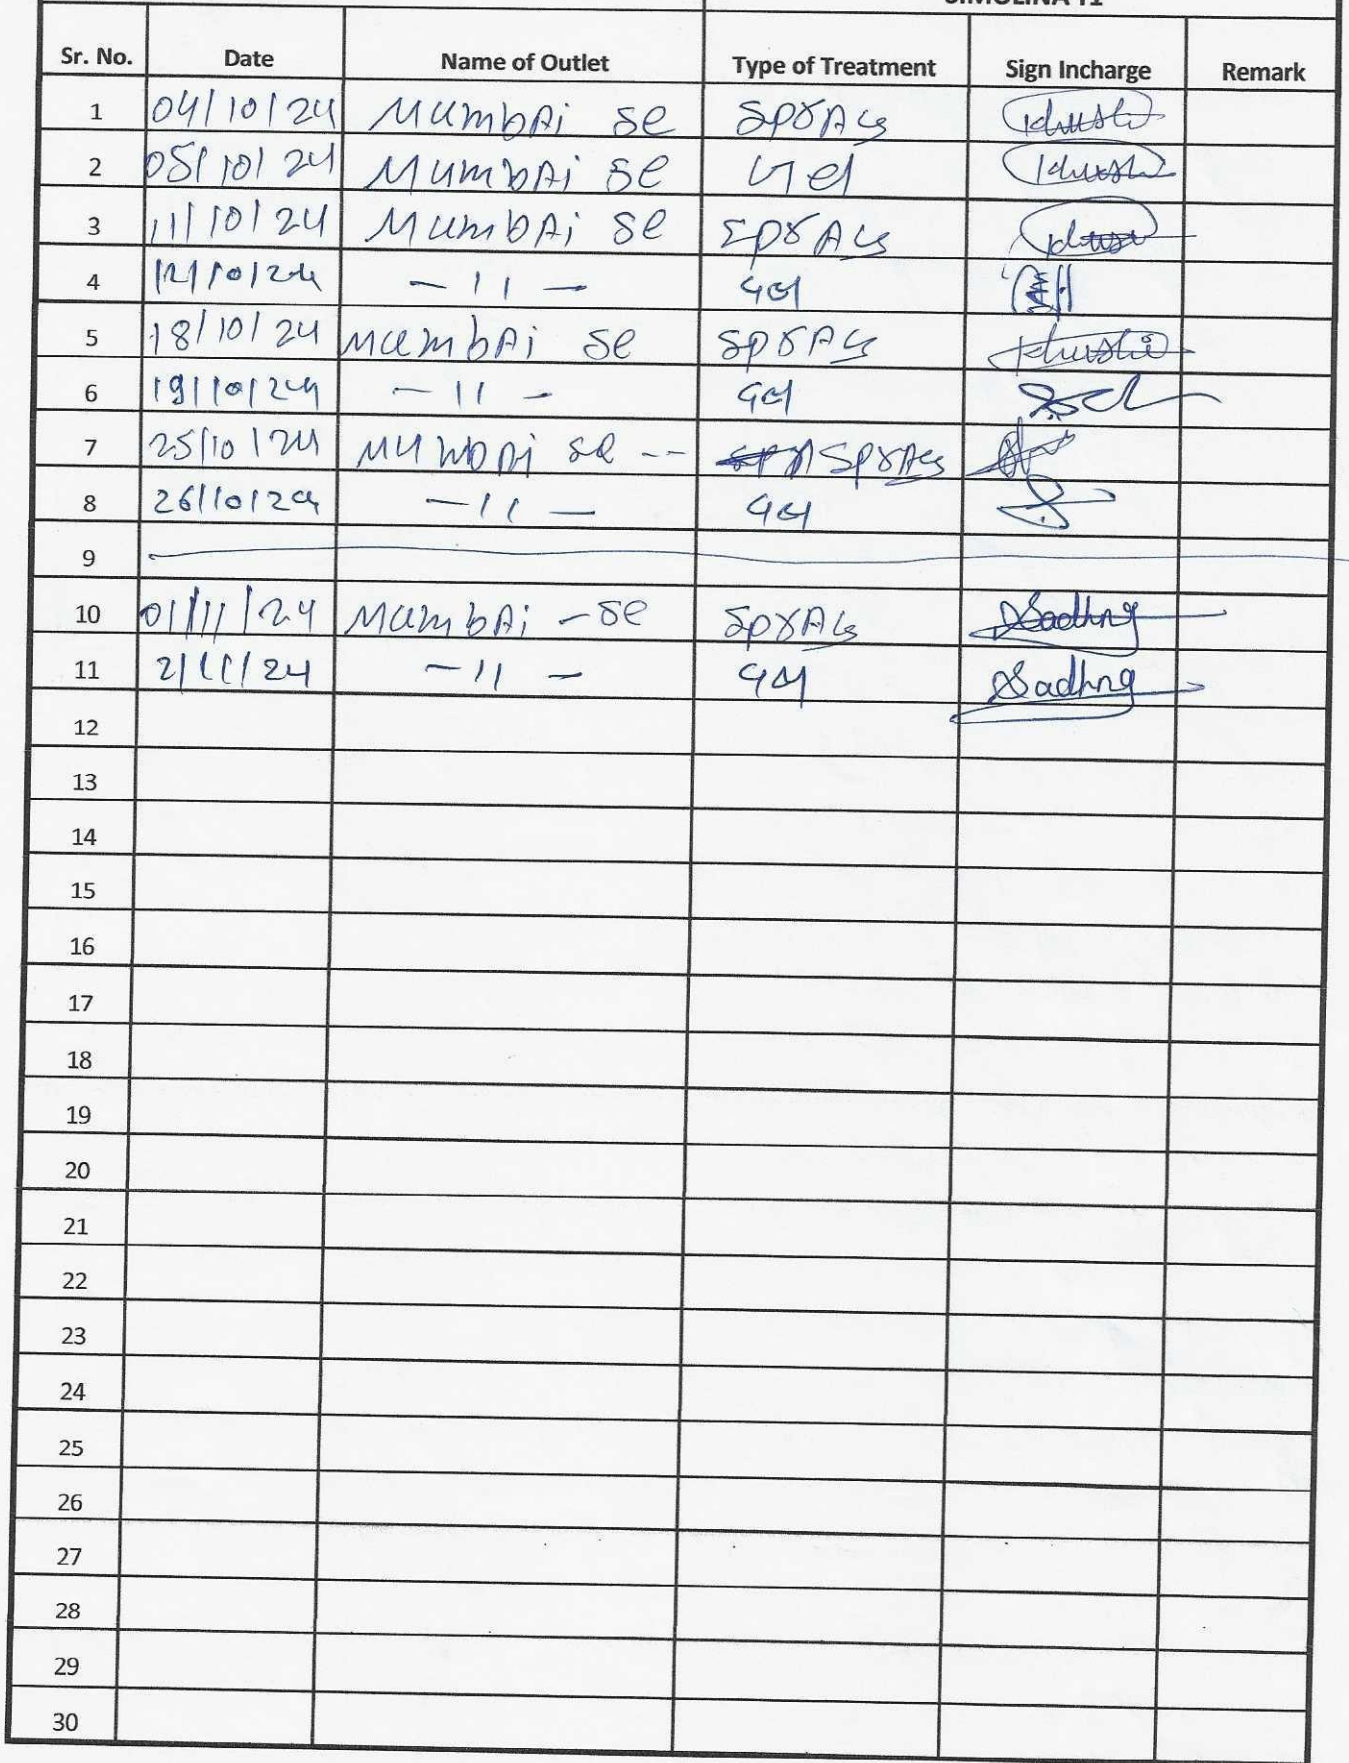 Sr. No. Date Name of Outlet Type of Treatment Sign Incharge Remark
1 04/10/24 MumbAi se SprAy Khushi
2 05/10/24 MumbAi se Gel Khushi
3 11/10/24 MumbAi se SprAy
4 12/10/24 — 11 — Gel
5 18/10/24 MumbAi se SprAy Khushi
6 19/10/24 — 11 — Gel
7 25/10/24 MumbAi se -- SprAy
8 26/10/24 — 11 — Gel
9
10 01/11/24 MumbAi - se SprAy Sadhna
11 2/11/24 — 11 — Gel Sadhna
12
13
14
15
16
17
18
19
20
21
22
23
24
25
26
27
28
29
30